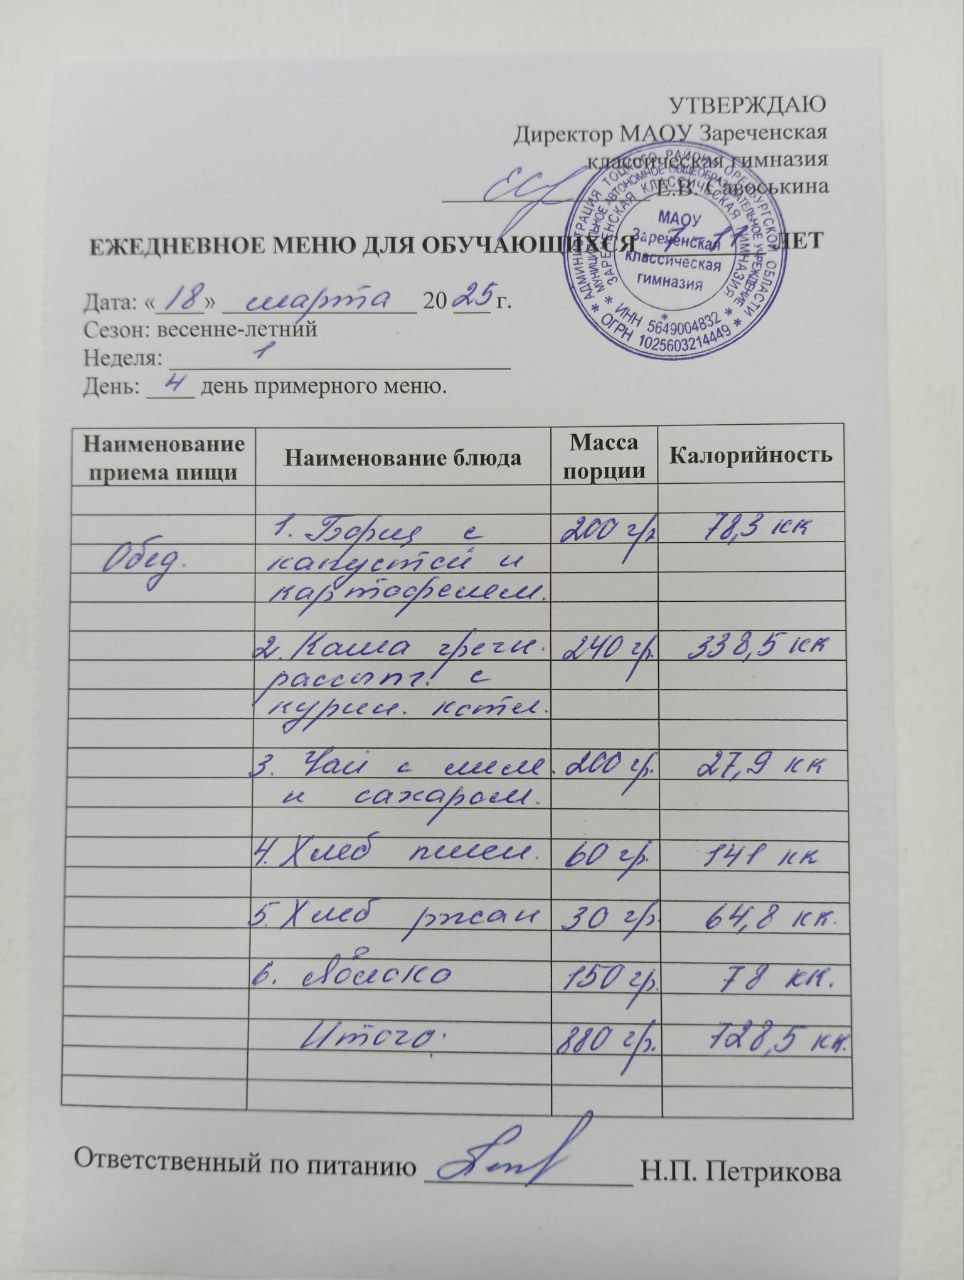 УТВЕРЖДАЮ
Директор МАОУ Зареченская
классическая гимназия
Е.В. Савоськина
АДМИНИСТРАЦИЯ ТОЦКОГО РАЙОНА ОРЕНБУРГСКОЙ ОБЛАСТИ
МУНИЦИПАЛЬНОЕ АВТОНОМНОЕ ОБЩЕОБРАЗОВАТЕЛЬНОЕ УЧРЕЖДЕНИЕ
ЗАРЕЧЕНСКАЯ КЛАССИЧЕСКАЯ ГИМНАЗИЯ
МАОУ
Зареченская
классическая
гимназия
* ИНН 5649004832 *
* ОГРН 1025603214449 *
ЕЖЕДНЕВНОЕ МЕНЮ ДЛЯ ОБУЧАЮЩИХСЯ 7-11 ЛЕТ
Дата: «18» марта 2025 г.
Сезон: весенне-летний
Неделя: 1
День: 4 день примерного меню.
Наименование приема пищи Наименование блюда Масса порции Калорийность
Обед.
1. Борщ с 200 гр 78,3 кк
капустой и
картофелем.
2. Каша гречн. 240 гр. 338,5 кк
рассыпч. с
курин. котл.
3. Чай с лим. 200 гр. 27,9 кк
и сахаром.
4. Хлеб пшен. 60 гр. 141 кк
5. Хлеб ржан 30 гр 64,8 кк.
6. Яблоко 150 гр. 78 кк.
Итого: 880 гр. 728,5 кк.
Ответственный по питанию Н.П. Петрикова